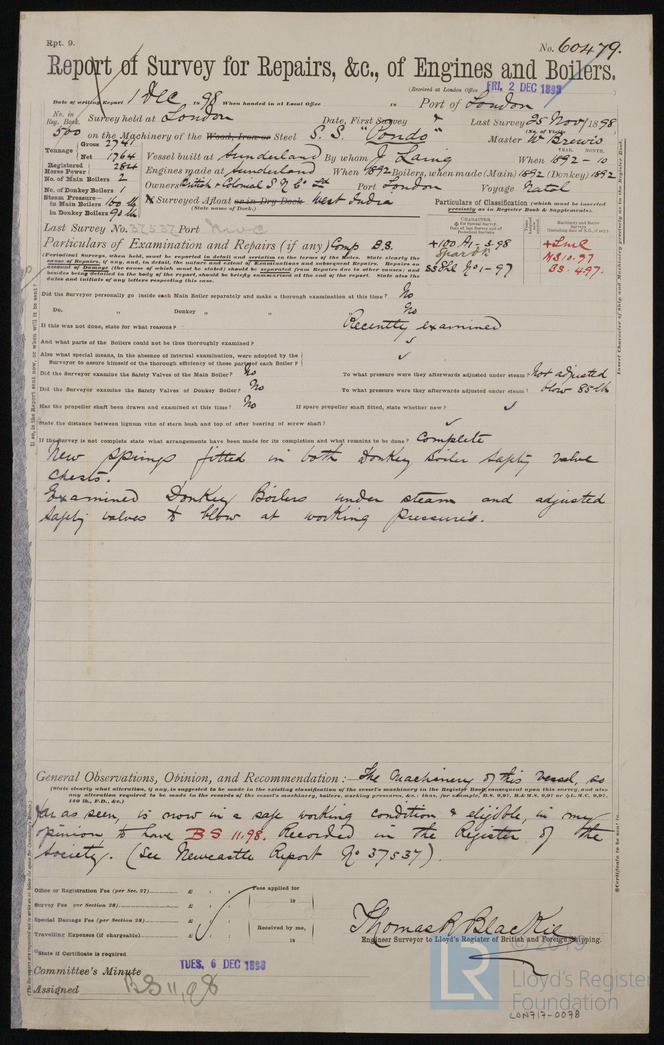 Rpt. 9.
No. 60479.
Report of Survey for Repairs, &c., of Engines and Boilers.
(Received at London Office FRI. 2 DEC 1898
Date of writing Report 1 Dec 1898 When handed in at Local Office 18 Port of London
No. in Reg. Book. Survey held at London Date, First Survey Last Survey 25 Nov 1898
(No. of Visits)
500 on the Machinery of the Wood, Iron or Steel S. S. "Pondo" Master W Brewis
Tonnage Gross 2741
Net 1764
Vessel built at Sunderland By whom J. Laing When 1892-10
YEAR. MONTH.
Registered Horse Power 284
Engines made at Sunderland When 1892 Boilers, when made (Main) 1892 (Donkey) 1892
No. of Main Boilers 2
No. of Donkey Boilers 1
Owners British & Colonial S N Co Ld Port London Voyage Natal
Steam Pressure—
in Main Boilers 160 lb
in Donkey Boilers 90 lb
Surveyed Afloat or in Dry Dock West India
(State name of Dock.)
Particulars of Classification (which must be inserted precisely as in Register Book & Supplements).
Last Survey No. 37537 Port NWC
CHARACTER
For Special Survey.
Date of last Survey and of Periodical Surveys
Machinery and Boiler Surveys
(Including date of N.B., if any)
+100 A1 - 3.98
Spar Dk
SS Shl No 1-97
+ LMC
MS 10.97
BS. 4.97.
Particulars of Examination and Repairs (if any) Comp B.S.
(Periodical Surveys, when held, must be reported in detail and seriatim in the terms of the Rules. State clearly the
cause of Repairs, if any, and, in detail, the nature and extent of Examinations and subsequent Repairs. Repairs on
account of Damage (the cause of which must be stated) should be separated from Repairs due to other causes; and
besides being detailed in the body of the report, should be briefly summarised at the end of the report. State also the
dates and initials of any letters respecting this case.
Did the Surveyor personally go inside each Main Boiler separately and make a thorough examination at this time? No
Do. „ Donkey „ „ No
If this was not done, state for what reasons? Recently examined
And what parts of the Boilers could not be thus thoroughly examined? ✓
Also what special means, in the absence of internal examination, were adopted by the
Surveyor to assure himself of the thorough efficiency of those parts of each Boiler? ✓
Did the Surveyor examine the Safety Valves of the Main Boiler? No To what pressure were they afterwards adjusted under steam? Not adjusted
Did the Surveyor examine the Safety Valves of Donkey Boiler? No To what pressure were they afterwards adjusted under steam? blow 85 lb
Has the propeller shaft been drawn and examined at this time? No If spare propeller shaft fitted, state whether new? ✓
State the distance between lignum vitæ of stern bush and top of after bearing of screw shaft? ✓
If the Survey is not complete state what arrangements have been made for its completion and what remains to be done? Complete
New springs fitted in both Donkey Boiler Safety valve
chests.
Examined Donkey Boilers under steam and adjusted
Safety valves to blow at working pressure's.
General Observations, Opinion, and Recommendation:— The machinery of this vessel, so
(State clearly what alteration, if any, is suggested to be made in the existing classification of the vessel's machinery in the Register Book consequent upon this survey, and also
any alteration required to be made in the records of the vessel's machinery, boilers, working pressures, &c.: thus, for example, B.S. 9,97, B.&M.S. 9,97 or +L.M.C. 9,97.
160 lb., F.D., &c.)
far as seen, is now in a safe working condition & eligible, in my
opinion to have BS 11.98. Recorded in the Register of the
Society. (See Newcastle Report No 37537).
Office or Registration Fee (per Sec. 27) £ : :
Survey Fee per Section 28) £ : :
Special Damage Fee (per Section 28) £ : :
Travelling Expenses (if chargeable) £ : :
Fees applied for
18
Received by me,
18
State if Certificate is required
Thomas R Blackie
Engineer Surveyor to Lloyd's Register of British and Foreign Shipping.
Committee's Minute TUES. 6 DEC 1898
Assigned BS 11,98
LR Lloyd's Register
Foundation
LON717-0078
Insert Character of Ship and Machinery precisely as in the Register Book.